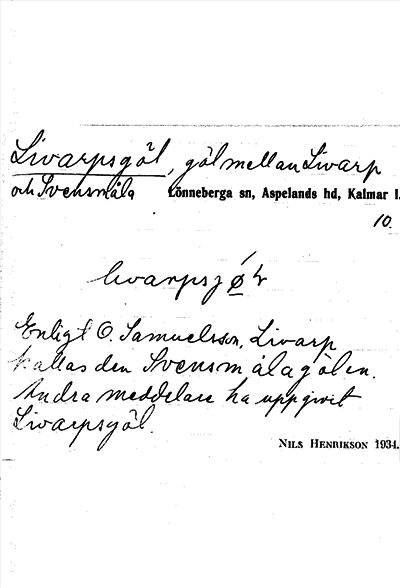 Livarpsgöl, göl mellan Livarp
och Svensmåla Lönneberga sn, Aspelands hd, Kalmar l.
10.
Enligt O. Samuelsson, Livarp
kallas den Svensmålagölen.
Andra meddelare ha uppgivit
Livarpsgöl.
NILS HENRIKSON 1934.